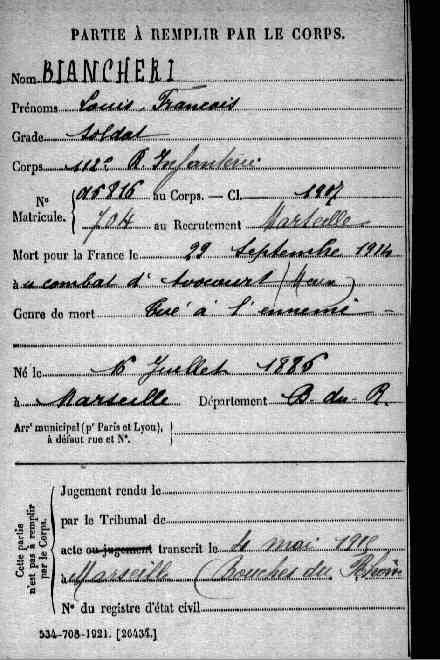 PARTIE À REMPLIR PAR LE CORPS.
Nom BIANCHERI
Prénoms Louis, Francois
Grade Soldat
Corps 112e R Infanterie
N° Matricule. 816 au Corps. — Cl. 1907
704 au Recrutement Marseille
Mort pour la France le 29 Septembre 1914
à u combat d'Avocourt (Meuse)
Genre de mort Tué à l'ennemi
Né le 16 Juillet 1886
à Marseille Département B. du R.
Arrt municipal (pr Paris et Lyon), à défaut rue et N°.
Cette partie n'est pas à remplir par le Corps.
Jugement rendu le
par le Tribunal de
acte ou jugement transcrit le 4 mai 1918
à Marseille (Bouches du Rhône
N° du registre d'état civil
534-708-1921. [26434.]